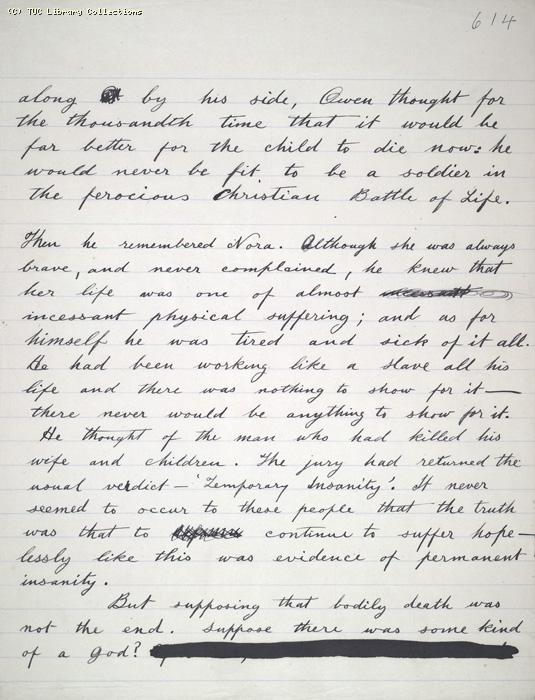 (C) TUC Library Collections
614
along by his side, Owen thought for
the thousandth time that it would be
far better for the child to die now: he
would never be fit to be a soldier in
the ferocious Christian Battle of Life.
Then he remembered Nora. Although she was always
brave, and never complained, he knew that
her life was one of almost
incessant physical suffering; and as for
himself he was tired and sick of it all.
He had been working like a slave all his
life and there was nothing to show for it—
there never would be anything to show for it.
He thought of the man who had killed his
wife and children. The jury had returned the
usual verdict — 'Temporary Insanity'. It never
seemed to occur to these people that the truth
was that to continue to suffer hope-
lessly like this was evidence of permanent
insanity.
But supposing that bodily death was
not the end. Suppose there was some kind
of a God?